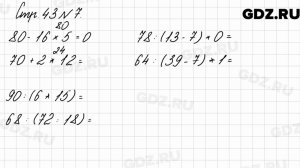 Стр. 43 N 7
GDZ.RU
80
80 - 16 * 5 = 0
78 : (13 - 7) * 0 =
24
70 + 2 * 12 =
64 : (39 - 7) * 1 =
90 : (6 * 15) =
68 : (72 : 18) =